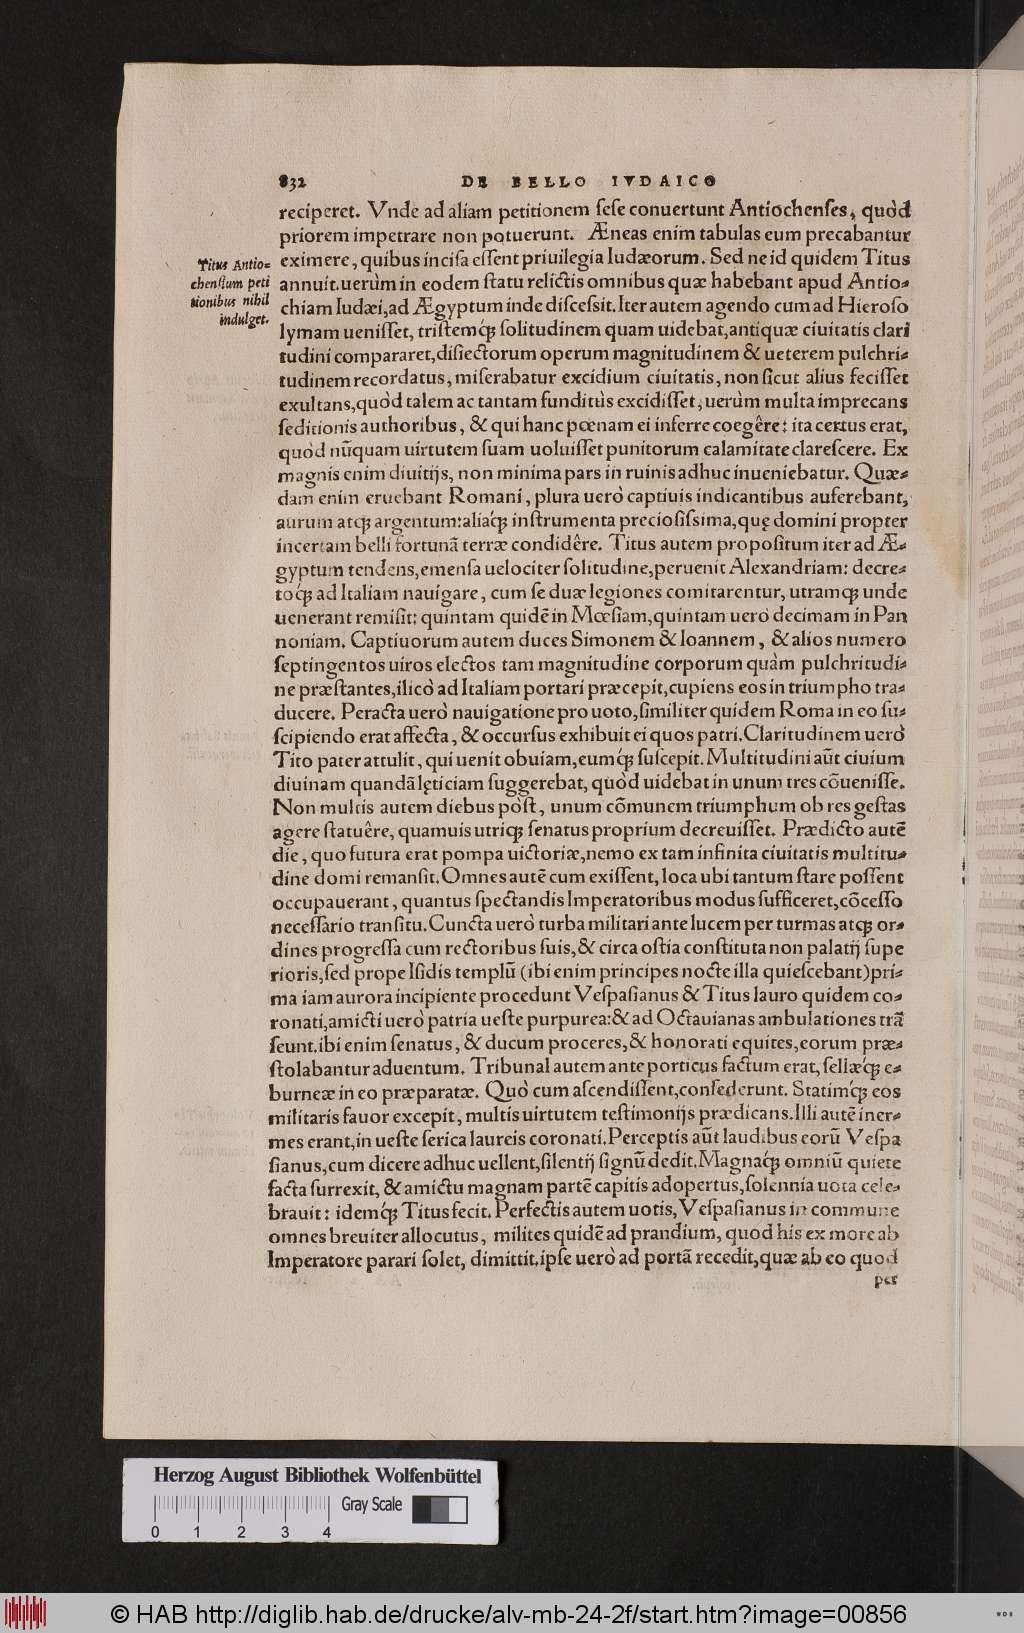 832 DE BELLO IVDAICO
reciperet. Vnde ad aliam petitionem ſeſe conuertunt Antiochenſes, quòd
priorem impetrare non potuerunt. Æneas enim tabulas eum precabantur
eximere, quibus inciſa eſſent priuilegia Iudæorum. Sed ne id quidem Titus
annuit. uerùm in eodem ſtatu relictis omnibus quæ habebant apud Antio-
chiam Iudæi, ad Ægyptum inde diſceſsit. Iter autem agendo cum ad Hieroſo
lymam ueniſſet, triſtemq́; ſolitudinem quam uidebat, antiquæ ciuitatis clari
tudini compararet, diſiectorum operum magnitudinem & ueterem pulchri-
tudinem recordatus, miſerabatur excidium ciuitatis, non ſicut alius feciſſet
exultans, quòd talem ac tantam funditùs excidiſſet, uerùm multa imprecans
ſeditionis authoribus, & qui hanc pœnam ei inferre coegêre: ita certus erat,
quòd nũquam uirtutem ſuam uoluiſſet punitorum calamitate clareſcere. Ex
magnis enim diuitijs, non minima pars in ruinis adhuc inueniebatur. Quæ-
dam enim eruebant Romani, plura uerò captiuis indicantibus auferebant,
aurum atq; argentum: aliaq́; inſtrumenta precioſiſsima, quę domini propter
incertam belli fortunã terræ condidêre. Titus autem propoſitum iter ad Æ-
gyptum tendens, emenſa uelociter ſolitudine, peruenit Alexandriam: decre-
toq́; ad Italiam nauigare, cum ſe duæ legiones comitarentur, utramq; unde
uenerant remiſit: quintam quidẽ in Mœſiam, quintam uero decimam in Pan
noniam. Captiuorum autem duces Simonem & Ioannem, & alios numero
ſeptingentos uiros electos tam magnitudine corporum quàm pulchritudi-
ne præſtantes, ilicò ad Italiam portari præcepit, cupiens eos in triumpho tra-
ducere. Peracta uerò nauigatione pro uoto, ſimiliter quidem Roma in eo ſu-
ſcipiendo erat affecta, & occurſus exhibuit ei quos patri. Claritudinem uerò
Tito pater attulit, qui uenit obuiam, eumq́; ſuſcepit. Multitudini aũt ciuium
diuinam quandã lęticiam ſuggerebat, quòd uidebat in unum tres cõueniſſe.
Non multis autem diebus pòſt, unum cõmunem triumphum ob res geſtas
agere ſtatuêre, quamuis utriq; ſenatus proprium decreuiſſet. Prædicto autẽ
die, quo futura erat pompa uictoriæ, nemo ex tam infinita ciuitatis multitu-
dine domi remanſit. Omnes autẽ cum exiſſent, loca ubi tantum ſtare poſſent
occupauerant, quantus ſpectandis Imperatoribus modus ſufficeret, cõceſſo
neceſſario tranſitu. Cuncta uerò turba militari ante lucem per turmas atq; or-
dines progreſſa cum rectoribus ſuis, & circa oſtia conſtituta non palatij ſupe
rioris, ſed prope Iſidis templũ (ibi enim principes nocte illa quieſcebant) pri-
ma iam aurora incipiente procedunt Veſpaſianus & Titus lauro quidem co-
ronati, amicti uerò patria ueſte purpurea: & ad Octauianas ambulationes trã
ſeunt. ibi enim ſenatus, & ducum proceres, & honorati equites, eorum præ-
ſtolabantur aduentum. Tribunal autem ante porticus factum erat, ſellæq́; e-
burneæ in eo præparatæ. Quò cum aſcendiſſent, conſederunt. Statimq́; eos
militaris fauor excepit, multis uirtutem teſtimonijs prædicans. Illi autẽ iner-
mes erant, in ueſte ſerica laureis coronati. Perceptis aũt laudibus eorũ Veſpa
ſianus, cum dicere adhuc uellent, ſilentij ſignũ dedit. Magnaq́; omniũ quiete
facta ſurrexit, & amictu magnam partẽ capitis adopertus, ſolennia uota cele-
brauit: idemq́; Titus fecit. Perfectis autem uotis, Veſpaſianus in commune
omnes breuiter allocutus, milites quidẽ ad prandium, quod his ex more ab
Imperatore parari ſolet, dimittit. ipſe uerò ad portã recedit, quæ ab eo quod
per
Titus Antio-
chenſium peti
tionibus nihil
indulget.
Herzog August Bibliothek Wolfenbüttel
Gray Scale
0 1 2 3 4
© HAB http://diglib.hab.de/drucke/alv-mb-24-2f/start.htm?image=00856